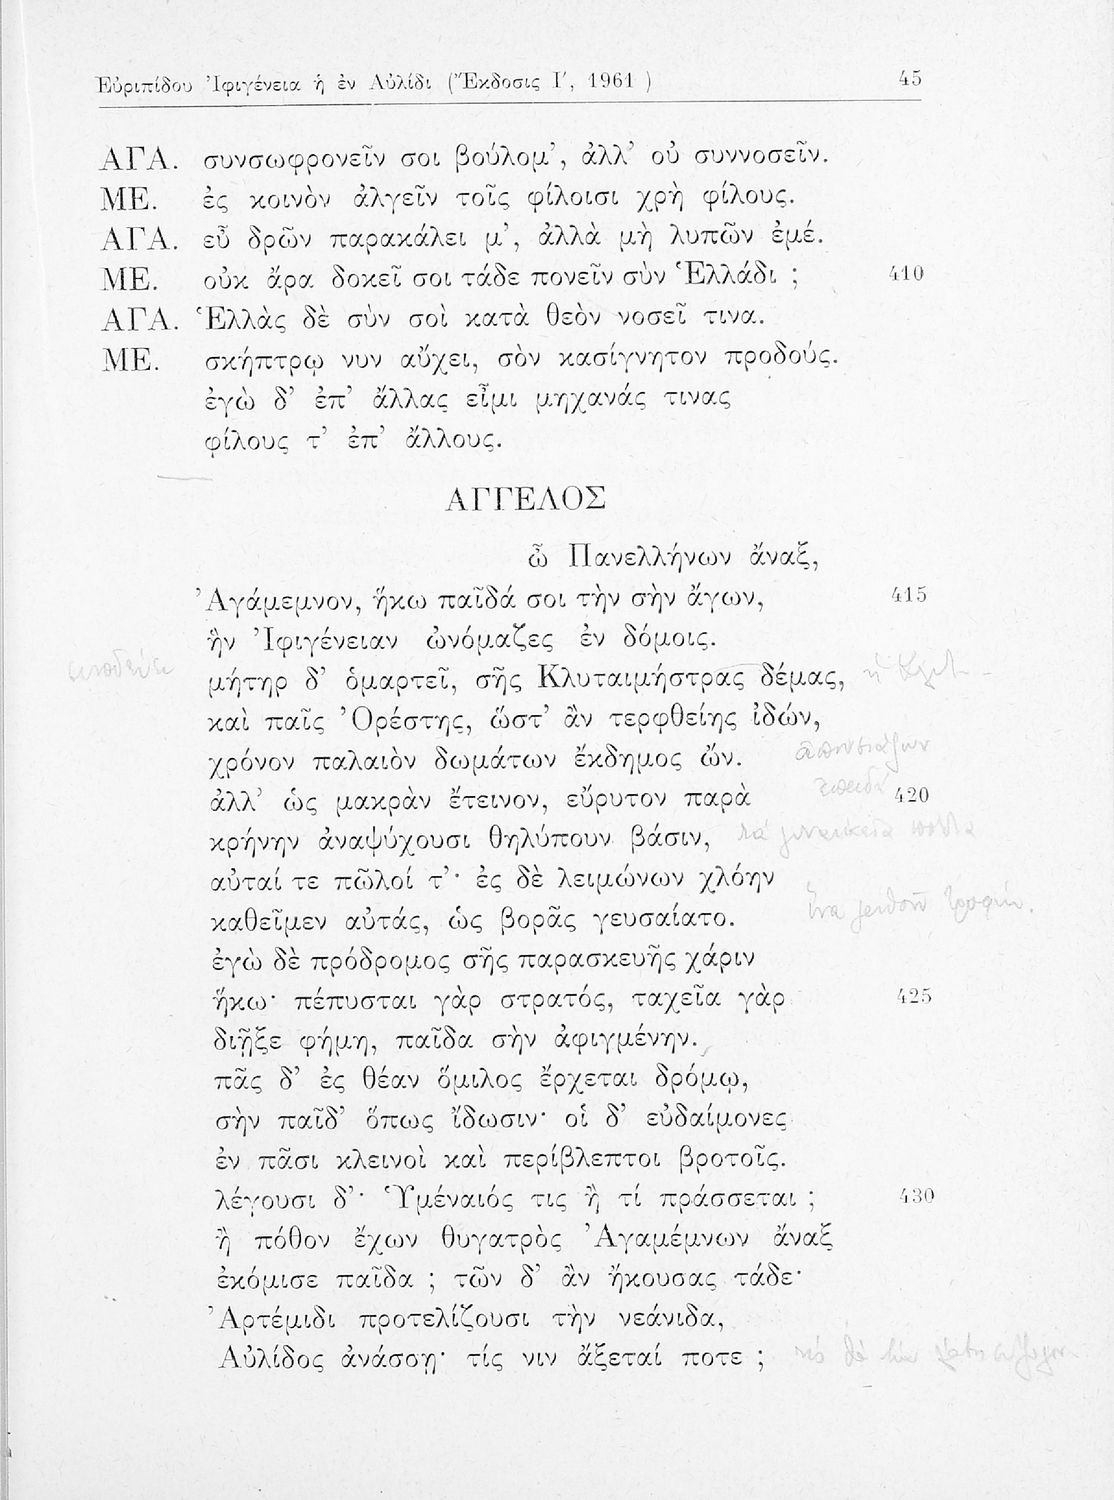 Εὐριπίδου Ἰφιγένεια ἡ ἐν Αὐλίδι (Ἔκδοσις Ι΄, 1961 ) 45
ΑΓΑ. συνσωφρονεῖν σοι βούλομ’, ἀλλ’ οὐ συννοσεῖν.
ΜΕ. ἐς κοινὸν ἀλγεῖν τοῖς φίλοισι χρὴ φίλους.
ΑΓΑ. εὖ δρῶν παρακάλει μ’, ἀλλὰ μὴ λυπῶν ἐμέ.
ΜΕ. οὐκ ἄρα δοκεῖ σοι τάδε πονεῖν σὺν Ἑλλάδι ; 410
ΑΓΑ. Ἑλλὰς δὲ σὺν σοὶ κατὰ θεὸν νοσεῖ τινα.
ΜΕ. σκήπτρῳ νυν αὔχει, σὸν κασίγνητον προδούς.
ἐγὼ δ’ ἐπ’ ἄλλας εἶμι μηχανάς τινας
φίλους τ’ ἐπ’ ἄλλους.
ΑΓΓΕΛΟΣ
ὦ Πανελλήνων ἄναξ,
Ἀγάμεμνον, ἥκω παῖδά σοι τὴν σὴν ἄγων, 415
ἣν Ἰφιγένειαν ὠνόμαζες ἐν δόμοις.
μήτηρ δ’ ὁμαρτεῖ, σῆς Κλυταιμήστρας δέμας,
καὶ παῖς Ὀρέστης, ὥστ’ ἂν τερφθείης ἰδών,
χρόνον παλαιὸν δωμάτων ἔκδημος ὤν.
ἀλλ’ ὡς μακρὰν ἔτεινον, εὔρυτον παρὰ 420
κρήνην ἀναψύχουσι θηλύπουν βάσιν,
αὐταί τε πῶλοί τ’· ἐς δὲ λειμώνων χλόην
καθεῖμεν αὐτάς, ὡς βορᾶς γευσαίατο.
ἐγὼ δὲ πρόδρομος σῆς παρασκευῆς χάριν
ἥκω· πέπυσται γὰρ στρατός, ταχεῖα γὰρ 425
διῇξε φήμη, παῖδα σὴν ἀφιγμένην.
πᾶς δ’ ἐς θέαν ὅμιλος ἔρχεται δρόμῳ,
σὴν παῖδ’ ὅπως ἴδωσιν· οἱ δ’ εὐδαίμονες
ἐν πᾶσι κλεινοὶ καὶ περίβλεπτοι βροτοῖς.
λέγουσι δ’· Ὑμέναιός τις ἢ τί πράσσεται ; 430
ἢ πόθον ἔχων θυγατρὸς Ἀγαμέμνων ἄναξ
ἐκόμισε παῖδα ; τῶν δ’ ἂν ἤκουσας τάδε·
Ἀρτέμιδι προτελίζουσι τὴν νεάνιδα,
Αὐλίδος ἀνάσσῃ· τίς νιν ἄξεταί ποτε ;